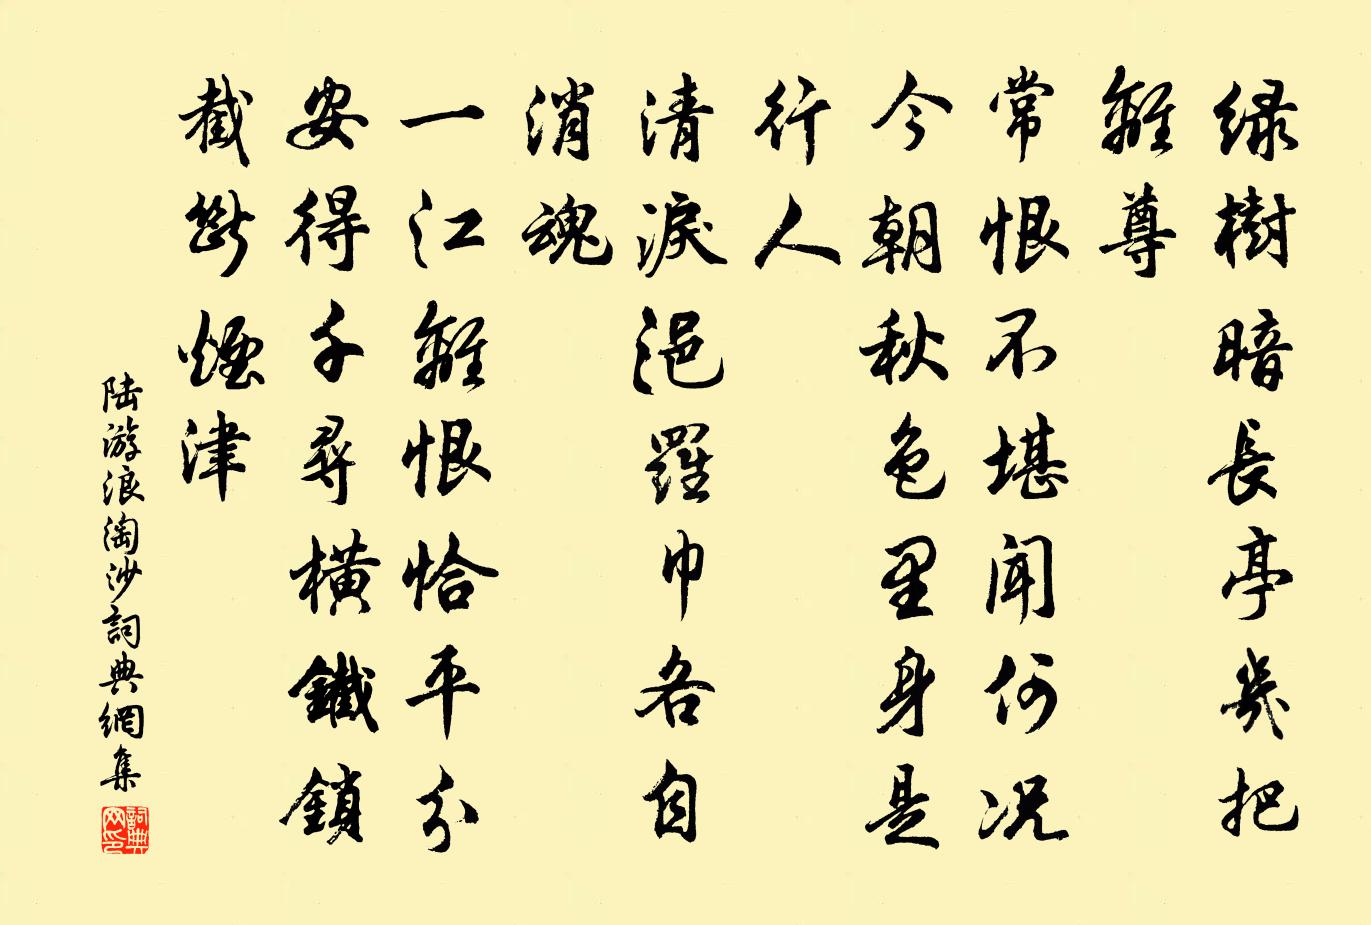 绿樹暗長亭幾把
離尊
常恨不堪聞何况
今朝秋色里身是
行人
清淚浥羅巾各自
消魂
一江離恨恰平分
安得千尋橫鐵鎖
截斷煙津
陆游浪淘沙詞典網集
詞典
网印